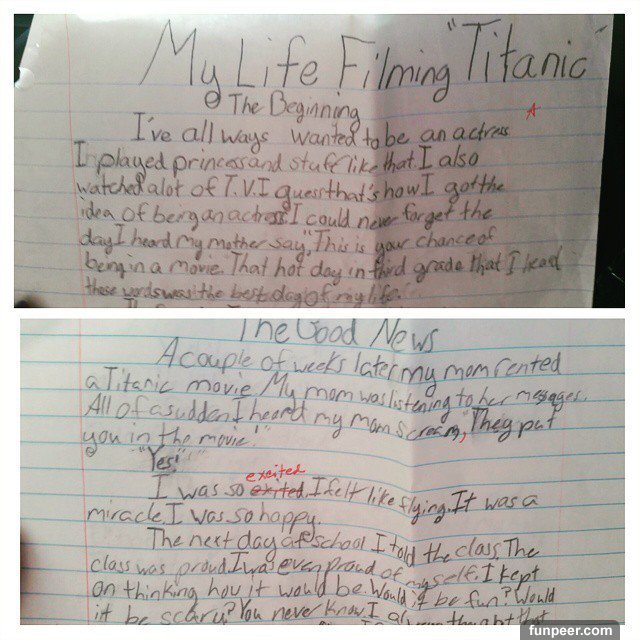 My Life Filming "Titanic"
The Beginning
I've all ways wanted to be an actress
I played princess and stuff like that. I also
watched alot of T.V. I guess that's how I got the
idea of being an actress I could never forget the
day I heard my mother say, "This is your chance of
being in a movie. That hot day in third grade that I heard
these words was the best day of my life.
The Good News
A couple of weeks later my mom rented
a Titanic movie. My mom was listening to her messages.
All of a sudden I heard my mom scream, "They put
you in the movie!"
"Yes!"
excited
I was so exited. I felt like flying. It was a
miracle. I was so happy.
The next day at school I told the class. The
class was proud. I was even proud of myself. I kept
on thinking how it would be. Would it be fun? Would
it be scary? You never know I thought that
funpeer.com